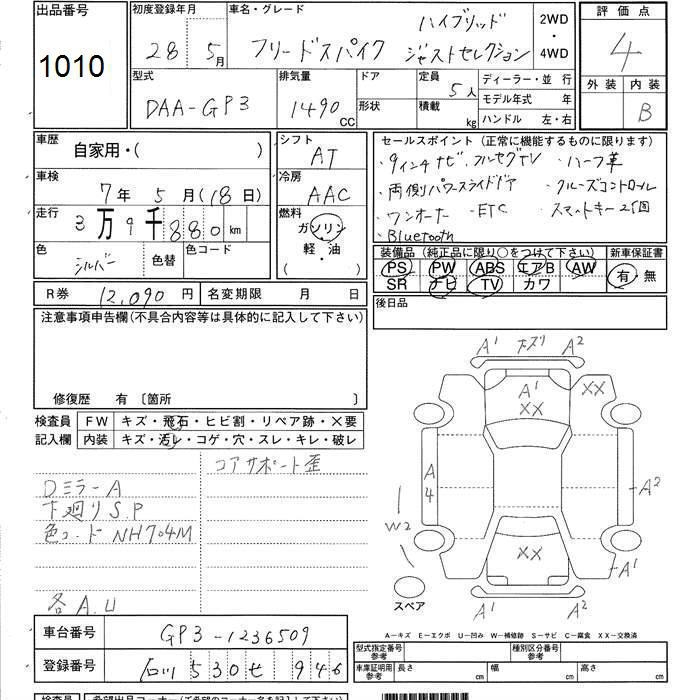 出品番号
1010
初度登録年月
28 5月
車名・グレード
ハイブリッド
フリードスパイク ジャストセレクション
2WD
・
4WD
評価点
4
外装 内装
B
型式
DAA-GP3
排気量
1490 CC
ドア
形状
定員 5人
積載 kg
ディーラー・並 行
モデル年式 年
ハンドル 左・右
車歴
自家用・( )
シフト
AT
車検
7年 5月(18日)
冷房
AAC
走行
3万9千880km
燃料
ガソリン
軽・油
( ・ )
色
シルバー
色替
色コード
セールスポイント (正常に機能するものに限ります)
・9インチナビ、フルセグTV ・ハーフ革
・両側パワースライドドア ・クルーズコントロール
・ワンオーナー ・ETC ・スマートキー2個
・Bluetooth
装備品 (純正品に限り○をつけて下さい)
新車保証書
PS PW ABS エアB AW
SR ナビ TV カワ
有・無
R券 12,090円
名変期限 月 日
後日品
注意事項申告欄(不具合内容等は具体的に記入して下さい)
修復歴 有 〔箇所 〕
検査員
記入欄
FW キズ・飛石・ヒビ割・リペア跡・X要
内装 キズ・汚レ・コゲ・穴・スレ・キレ・破レ
コアサポート歪
DミラーA
下廻りS.P
色コードNH704M
各A.U
A1 キズリ A2
A1
XX
XX
A
4
A2
W2
XX
A1
スペア
A1 A2
A−キズ E−エクボ U−凹み W−補修跡 S−サビ C−腐食 XX−交換済
車台番号
GP3-1236509
登録番号
石川 530 せ 946
型式指定番号
参考
種別区分番号
参考
車庫証明用
参考
長さ cm
幅 cm
高さ cm